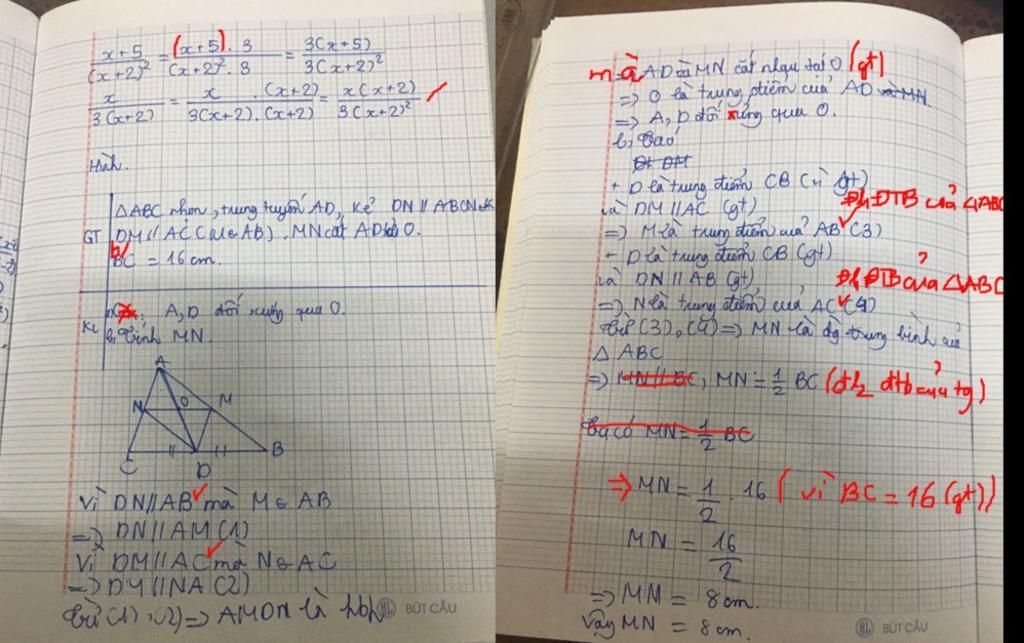 x+5/(x+2)² = (x+5).3/(x+2)².3 = 3(x+5)/3(x+2)²
x/3(x+2) = x.(x+2)/3(x+2).(x+2) = x(x+2)/3(x+2)²
Hình.
GT
△ABC nhọn, trung tuyến AD, kẻ DN // AB
DM // AC (M∈AB). MN cắt AD tại O.
b/
BC = 16cm.
KL
A, D đối xứng qua O.
b, Tính MN.
A
N O M
C D B
Vì DN//AB mà M∈AB
=> DN//AM (1)
Vì DM//AC mà N∈AC
=> DM//NA (2)
Từ (1), (2) => AMDN là hbh
HL BÚT CÂU
mà AD và MN cắt nhau tại O (gt)
=> O là trung điểm của AD và MN.
=> A, D đối xứng qua O.
b, Ta có
Đt DM
+ D là trung điểm CB (vì gt)
và DM // AC (gt)
ĐTB của △ABC
=> M là trung điểm của AB (3)
+ D là trung điểm CB (gt)
?
và DN // AB (gt)
ĐTB của △ABC
=> N là trung điểm của AC (4)
Từ (3), (4) => MN là đg trung bình của
△ ABC
=> MN//BC, MN = 1/2 BC (đl2 đtb của tg)
Ta có MN = 1/2 BC
=> MN = 1/2 . 16 (vì BC = 16 (gt))
MN = 16/2
=> MN = 8cm.
Vậy MN = 8cm.
HL BÚT CÂU